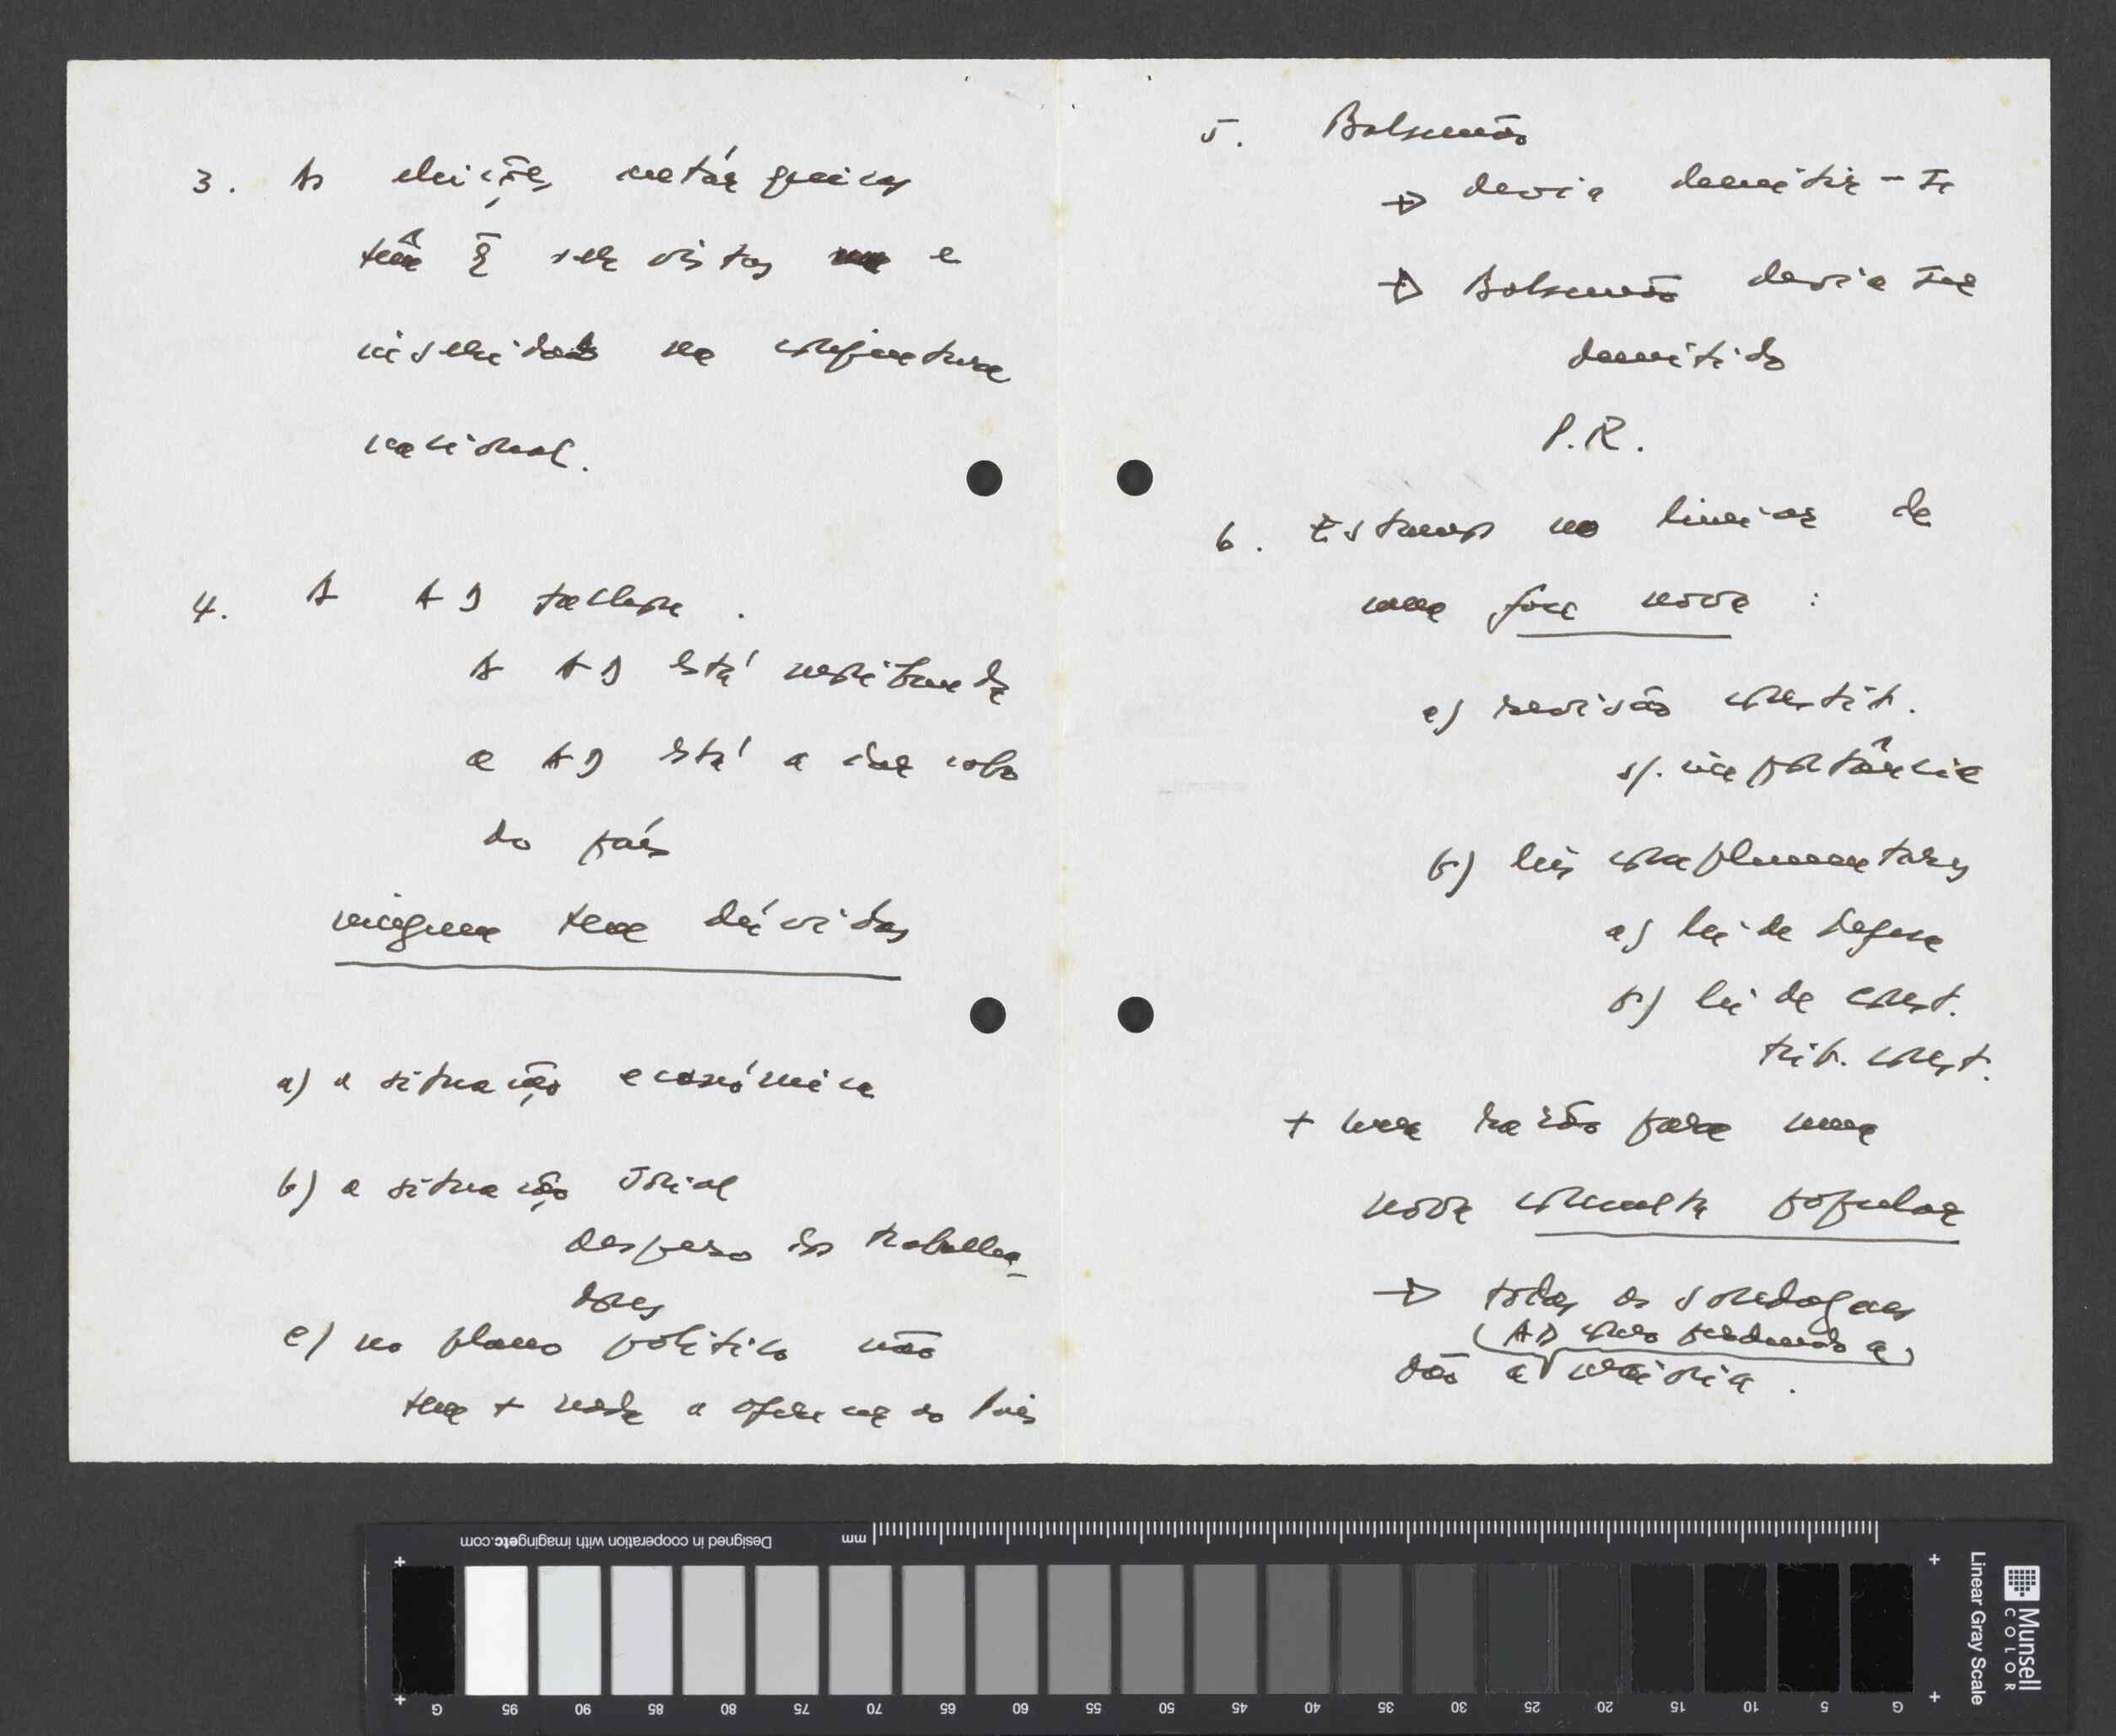 3. As eleições autárquicas
têm q̃ ser vistas e
inseridas na conjuntura
nacional.
4. A AD falhou.
A AD está moribunda
a AD está a dar cabo
do país
ninguem tem dúvidas
a) a situação económica
b) a situação social
desespero dos trabalha-
dores
c) no plano político não
tem + nada a oferecer ao País
5. Balsemão
→ devia demitir-se
→ Balsemão devia ser
demitido
P.R.
6. Estamos no limiar de
uma fase nova :
a) revisão constit.
s/. importância
b) leis complementares
a) lei de defesa
b) lei de const.
trib. const.
+ uma razão para uma
nova consulta popular
→ todas as sondagens
(AD como perdendo a)
dão a maioria.
Designed in cooperation with imagingetc.com
mm
G 95 90 85 80 75 70 65 60 55 50 45 40 35 30 25 20 15 10 5 G
Linear Gray Scale
Munsell
COLOR